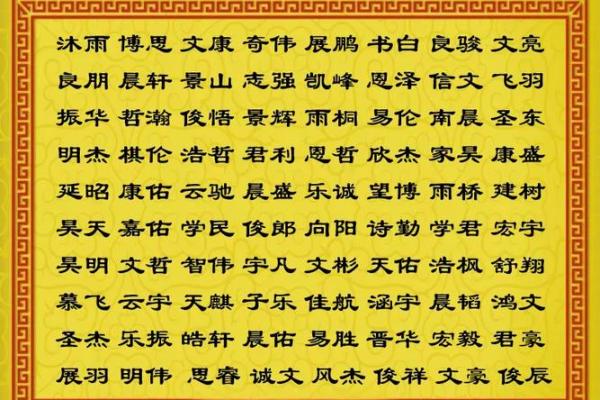 沐雨 博思 文康 奇伟 展鹏 书白 良骏 文亮
良朋 晨轩 景山 志强 凯峰 恩泽 信文 飞羽
振华 哲瀚 俊悟 景辉 雨桐 易伦 南晨 圣东
明杰 棋伦 浩哲 君利 恩哲 欣杰 家昊 康盛
延昭 康佑 云驰 晨盛 乐诚 望博 雨桥 建树
昊天 嘉佑 学民 俊郎 向阳 诗勤 学君 宏宇
昊明 文哲 智伟 宇凡 文彬 天佑 浩枫 舒翔
慕飞 云宇 天麒 子乐 佳航 涵宇 晨韬 鸿文
圣杰 乐振 皓轩 晨佑 易胜 晋华 宏毅 君豪
展羽 明伟 思睿 诚文 风杰 俊祥 文豪 俊辰